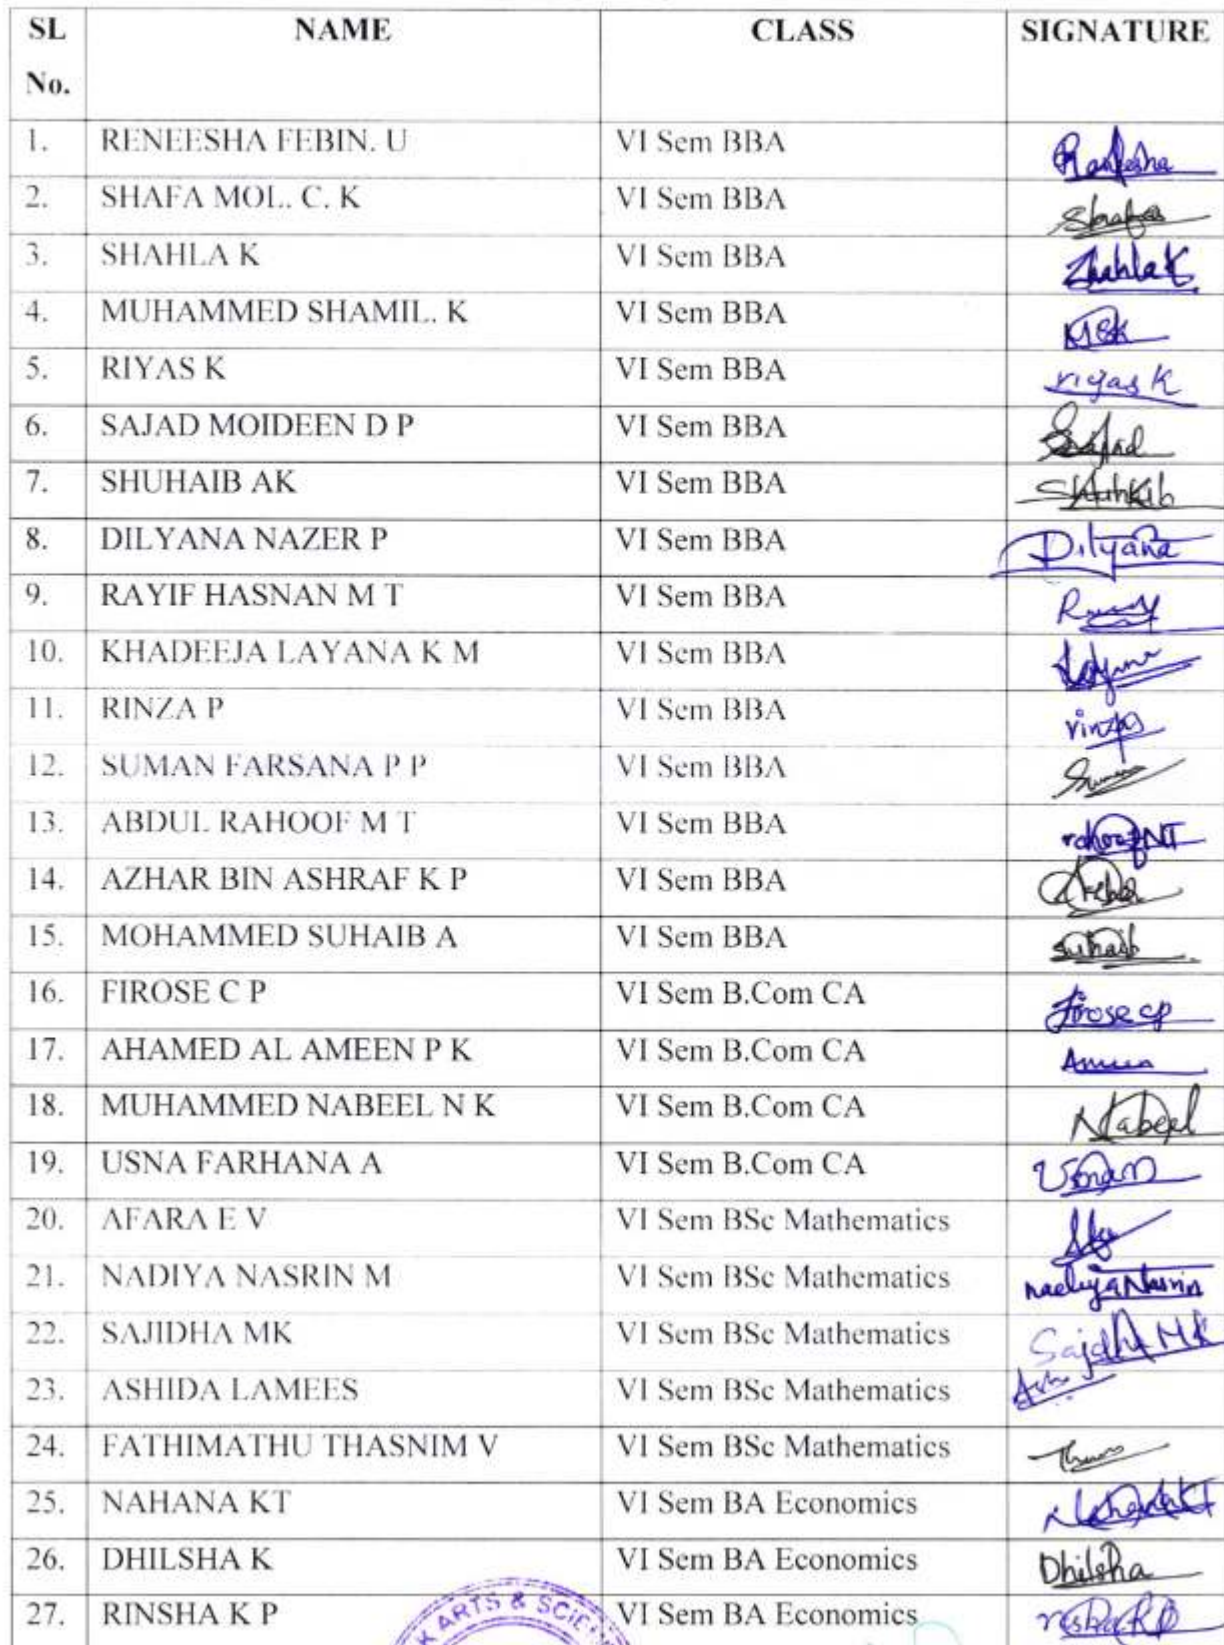 SL No. NAME CLASS SIGNATURE
1. RENEESHA FEBIN. U VI Sem BBA
2. SHAFA MOL. C. K VI Sem BBA
3. SHAHLA K VI Sem BBA Shahla K
4. MUHAMMED SHAMIL. K VI Sem BBA MSK
5. RIYAS K VI Sem BBA riyas K
6. SAJAD MOIDEEN D P VI Sem BBA Sajad
7. SHUHAIB AK VI Sem BBA
8. DILYANA NAZER P VI Sem BBA Dilyana
9. RAYIF HASNAN M T VI Sem BBA
10. KHADEEJA LAYANA K M VI Sem BBA
11. RINZA P VI Sem BBA
12. SUMAN FARSANA P P VI Sem BBA
13. ABDUL RAHOOF M T VI Sem BBA
14. AZHAR BIN ASHRAF K P VI Sem BBA
15. MOHAMMED SUHAIB A VI Sem BBA Suhaib
16. FIROSE C P VI Sem B.Com CA firose cp
17. AHAMED AL AMEEN P K VI Sem B.Com CA
18. MUHAMMED NABEEL N K VI Sem B.Com CA Nabeel
19. USNA FARHANA A VI Sem B.Com CA
20. AFARA E V VI Sem BSc Mathematics
21. NADIYA NASRIN M VI Sem BSc Mathematics nadiya Nasrin
22. SAJIDHA MK VI Sem BSc Mathematics Sajidha MK
23. ASHIDA LAMEES VI Sem BSc Mathematics
24. FATHIMATHU THASNIM V VI Sem BSc Mathematics
25. NAHANA KT VI Sem BA Economics
26. DHILSHA K VI Sem BA Economics Dhilsha
27. RINSHA K P VI Sem BA Economics
ARTS &